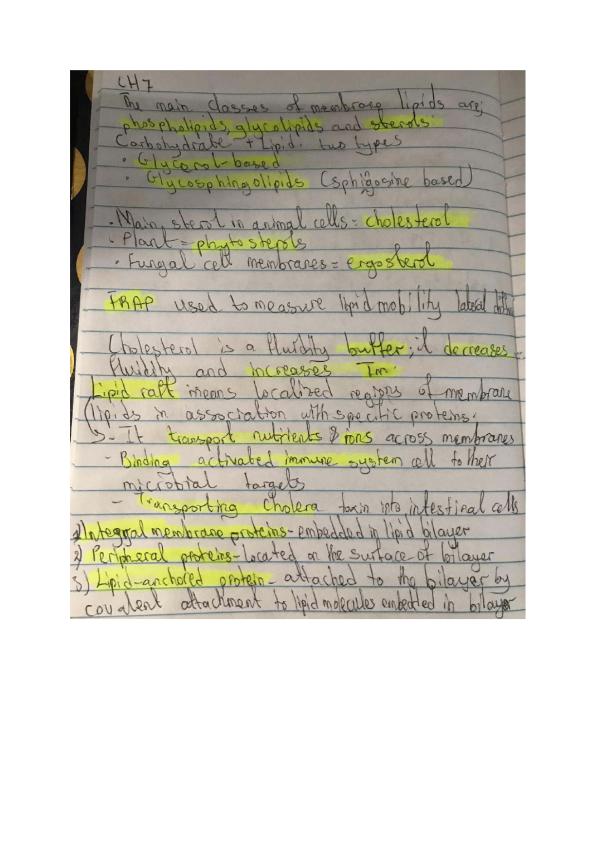 CH7
The main classes of membrane lipids are;
phospholipids, glycolipids and sterols
Carbohydrate + Lipid. two types
• Glycerol-based
• Glycosphingolipids (sphigosine based)
• Main sterol in animal cells = cholesterol
• Plant = phytosterols
• Fungal cell membranes = ergosterol
FRAP used to measure lipid mobility lateral
Cholesterol is a fluidity buffer; it decreases
fluidity and increases Tm.
Lipid raft means localized regions of membrane
lipids in association with specific proteins.
- It transport nutrients & ions across membranes
- Binding activated immune system cell to their
microbial targets
- Transporting Cholera toxin into intestinal cells
1) Integral membrane proteins - embedded in lipid bilayer
2) Peripheral proteins - located on the surface of bilayer
3) Lipid-anchored protein - attached to the bilayer by
covalent attachment to lipid molecules embedded in bilayer